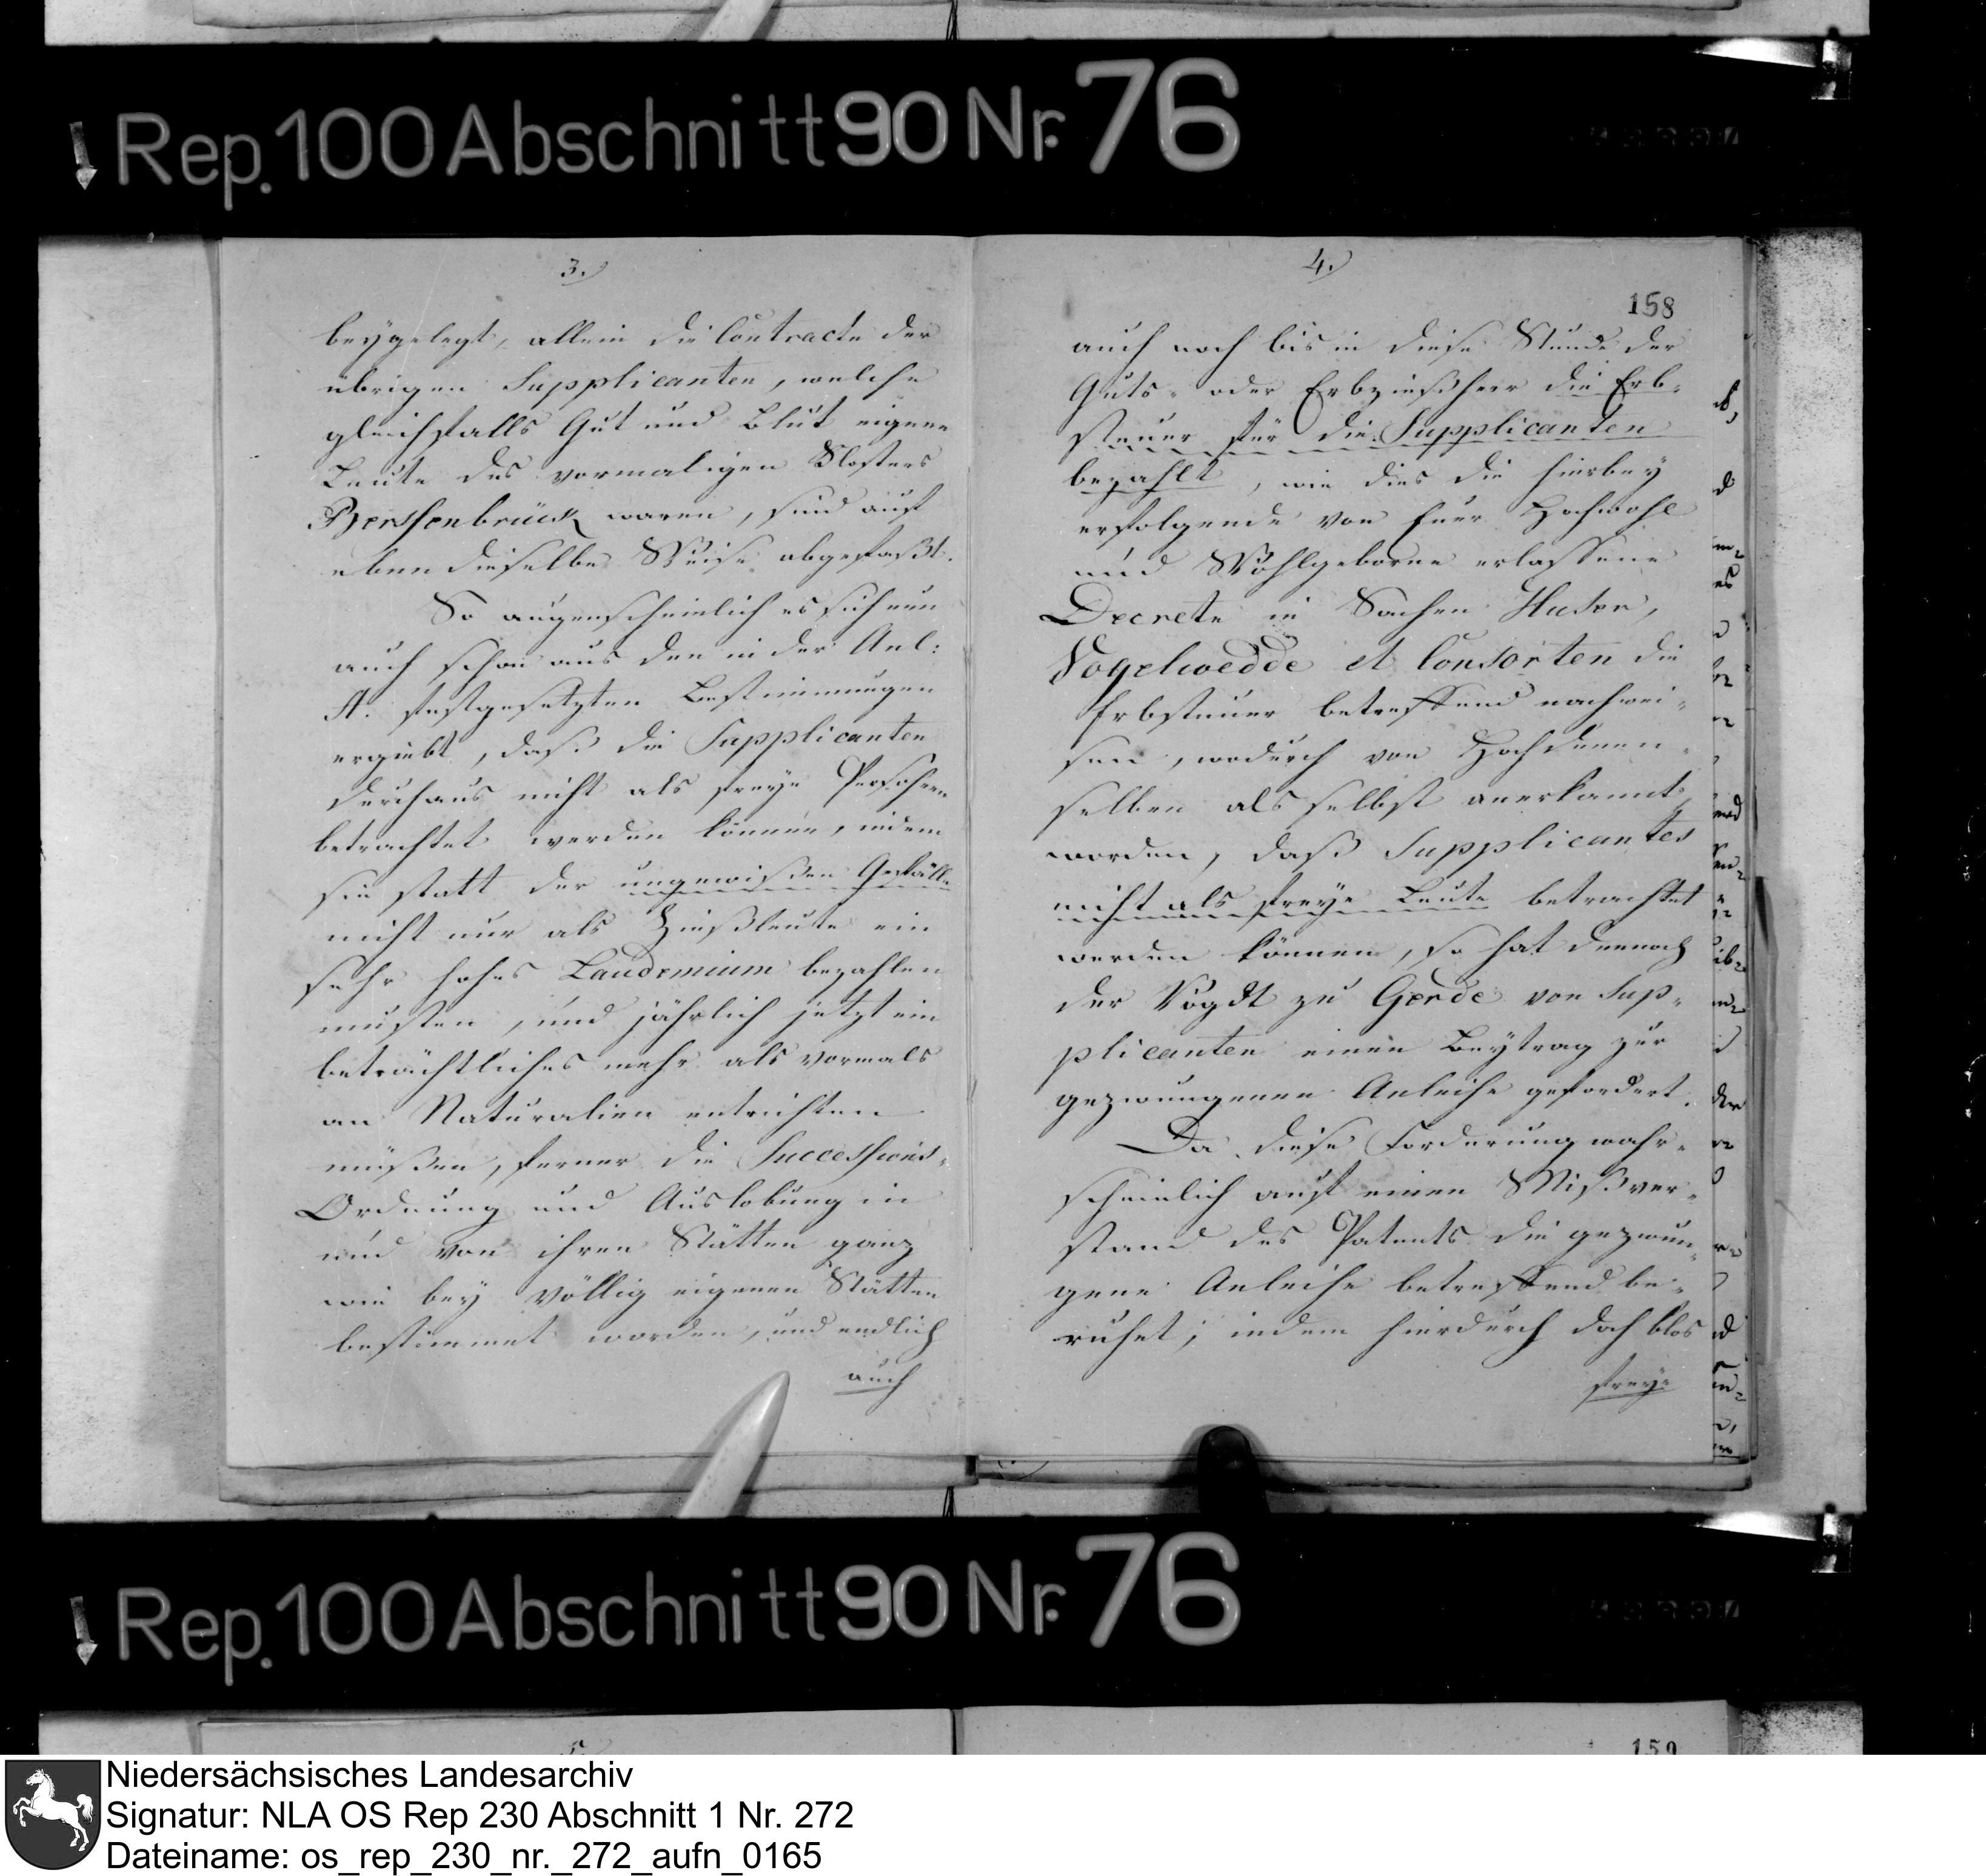 Rep. 100 Abschnitt 90 Nr. 76
3.
beygelegt, allein die Contracte der
übrigen Supplicanten, welche
gleichfalls Gut und Blut eigene
Leute des vormaligen Klosters
Berssenbrück waren, sind auf
eben dieselbe Weise abgefaßt.
So augenscheinlich es sich nun
auch schon aus den in der Anl:
A. festgesetzten Bestimmungen
ergiebt, daß die Supplicanten
durchaus nicht als freye Persohnen
betrachtet werden können, indem
sie statt der ungewißen Gefälle
nicht nur als Zinßleute ein
sehr hohes Laudemium bezahlen
musten, und jährlich jetzt ein
beträchtliches mehr als vormals
an Naturalien entrichten
müßen, ferner die Successions-
Ordnung und Auslobung in
und von ihren Stätten ganz
wie bey völlig eigenen Stätten
bestimmet worden, und endlich
auch
4.
158
auch noch bis in diese Stunde der
Guts- oder Erbzinßherr die Erb-
steuer für die Supplicanten
bezahlt, wie dies die hierbey
erfolgende von Euer Hochwohl
und Wohlgeborne erlassene
Decrete in Sachen Huser,
Vogelwedde et Consorten die
Erbsteuer betreffend nachwei-
sen, wodurch von Hochdenen-
selben als selbst anerkannt
worden, daß Supplicantes
nicht als freye Leute betrachtet
werden können, so hat dennoch
der Vogdt zu Gerde von Sup-
plicanten einen Beytrag zur
gezwungenen Anleihe gefordert.
Da diese Forderung wahr-
scheinlich auf einen Mißver-
stand des Patents die gezwun-
gene Anleihe betreffend be-
ruhet; indem hierdurch doch blos
freye
Rep. 100 Abschnitt 90 Nr. 76
5.
159
Niedersächsisches Landesarchiv
Signatur: NLA OS Rep 230 Abschnitt 1 Nr. 272
Dateiname: os_rep_230_nr._272_aufn_0165